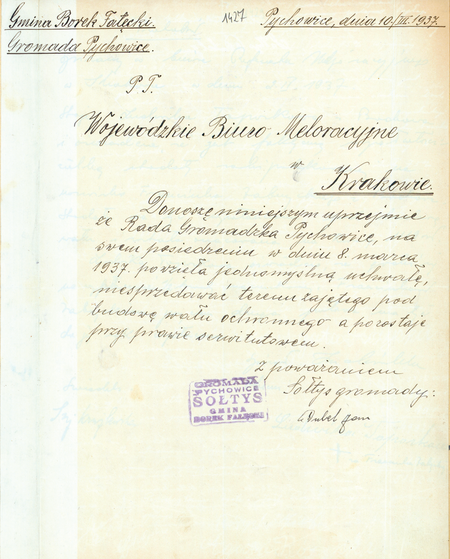 Gmina Borek Fałęcki. 1427 Pychowice, dnia 10/III. 1937.
Gromada Pychowice.
P. T.
Wojewódzkie Biuro Meloracyjne
w
Krakowie.
Donoszę niniejszym uprzejmie
że Rada Gromadzka Pychowice, na
swem posiedzeniu w dniu 8. marca
1937. powzięła jednomyślną uchwałę,
niesprzedawać terenu zajętego pod
budowę wału ochronnego a pozostaje
przy prawie serwitutowem.
Z poważaniem
Sołtys gromady:
GROMADA
PYCHOWICE
SOŁTYS
GMINA
BOREK FAŁĘCKI